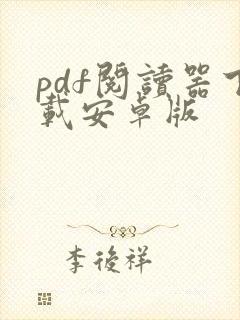 pdf閱讀器下
載安卓版
李後祥